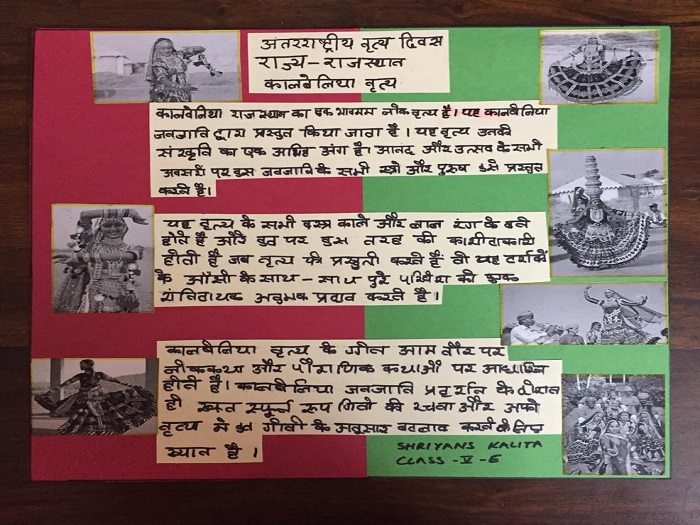 अंतरराष्ट्रीय नृत्य दिवस
राज्य-राजस्थान
कालबेलिया नृत्य
कालबेलिया राजस्थान का एक भावमय लोक नृत्य है। यह कालबेलिया
जनजाति द्वारा प्रस्तुत किया जाता है। यह नृत्य उनकी
संस्कृति का एक अभिन्न अंग है। आनंद और उत्सव के सभी
अवसरों पर इस जनजाति के सभी स्त्री और पुरुष इसे प्रस्तुत
करते है।
यह नृत्य के सभी वस्त्र काले और लाल रंग के बने
होते हैं और इन पर इस तरह की कशीदाकारी
होती है जब नृत्य की प्रस्तुती करते हैं तो यह दर्शकों
के आँखों के साथ-साथ पुरे परिवेश को एक
अनुभव प्रदान करते है।
कालबेलिया नृत्य के गीत आम तौर पर
लोककथा और पौराणिक कथाओं पर आधारित
होती है। कालबेलिया जनजाति प्रदर्शन के दौरान
ही स्वतः स्फूर्त रूप गितो की रचना और अपने
नृत्य में इन गीतों के अनुसार बदलाव करने के लिए
ख्यात है।
SHRIYANS KALITA
CLASS-V-E